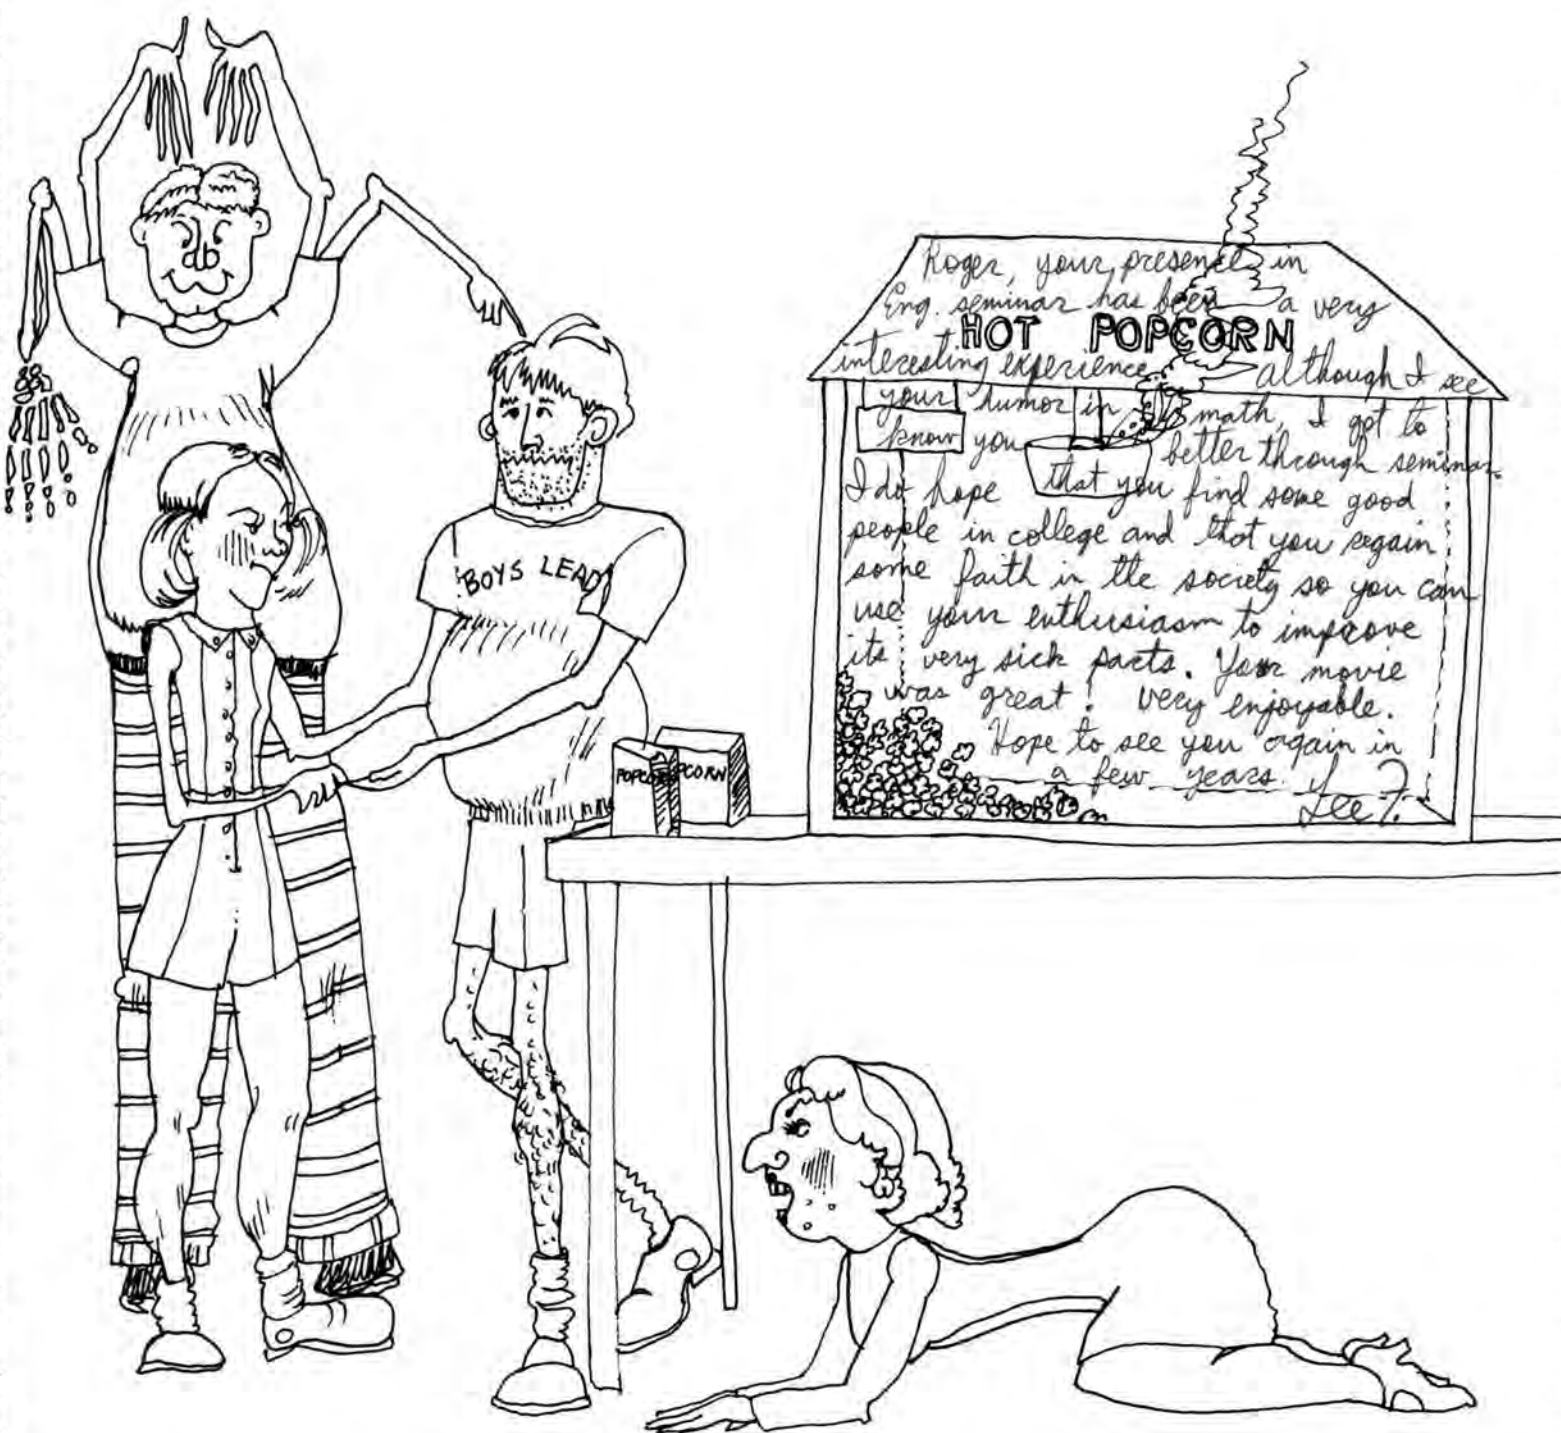 BOYS LEAD
Roger, your presence in
Eng. seminar has been a very
HOT POPCORN
interesting experience although I see
your humor in math, I got to
know you better through seminar.
I do hope that you find some good
people in college and that you regain
some faith in the society so you can
use your enthusiasm to improve
its very sick parts. Your movie
was great! very enjoyable.
Hope to see you again in
a few years.
Lee F.
POPCO
PCORN